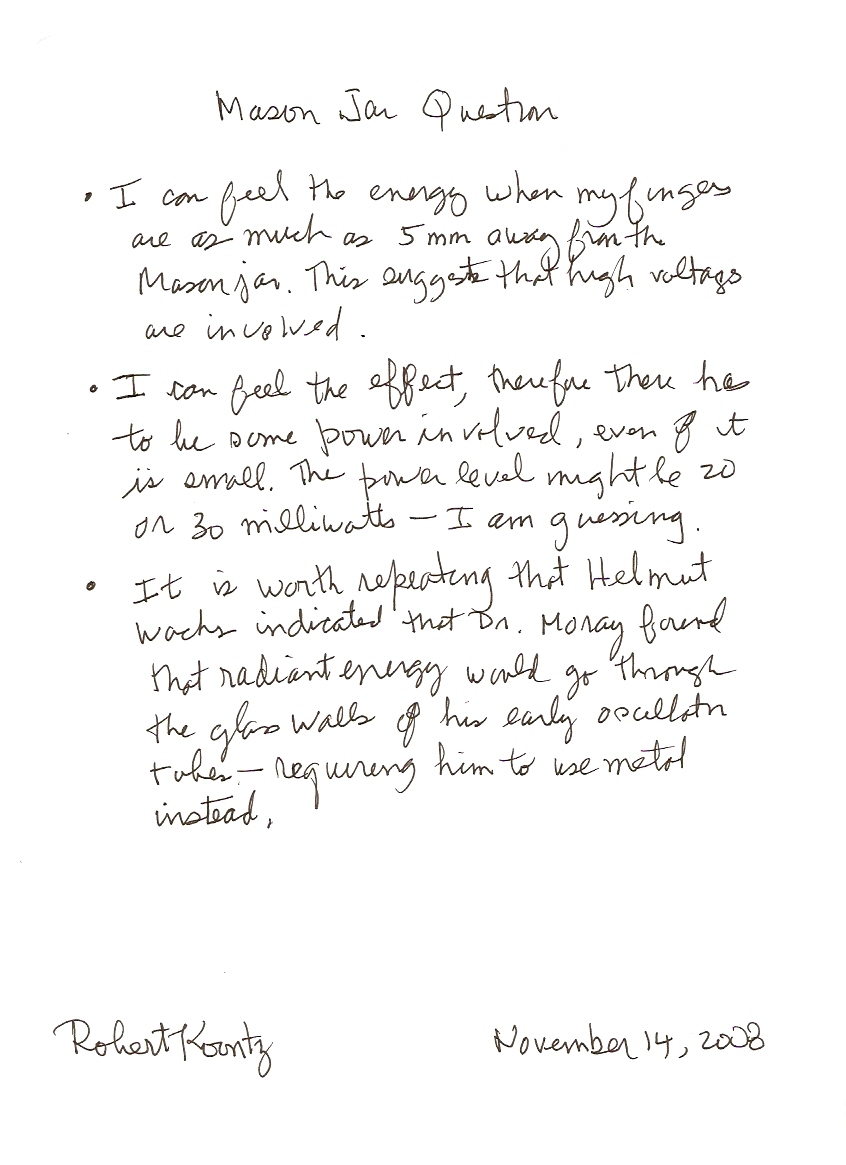 Mason Jar Question
• I can feel the energy when my fingers
are as much as 5 mm away from the
Mason jar. This suggests that high voltages
are involved.
• I can feel the effect, therefore there has
to be some power involved, even if it
is small. The power level might be 20
or 30 milliwatts — I am guessing.
• It is worth repeating that Helmut
Wachs indicated that Dr. Moray found
that radiant energy would go through
the glass walls of his early oscillator
tubes — requiring him to use metal
instead.
Robert Koontz
November 14, 2008